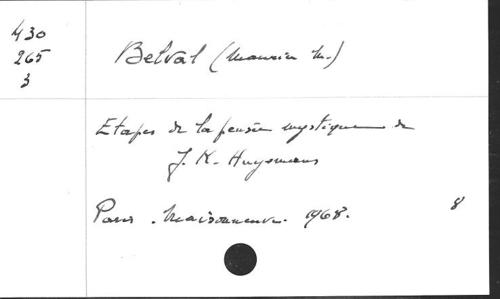 430
265
3
Belval (Maurice M.)
Etapes de la pensée mystique de
J. K. Huysmans
Paris . Maisonneuve . 1968.
8